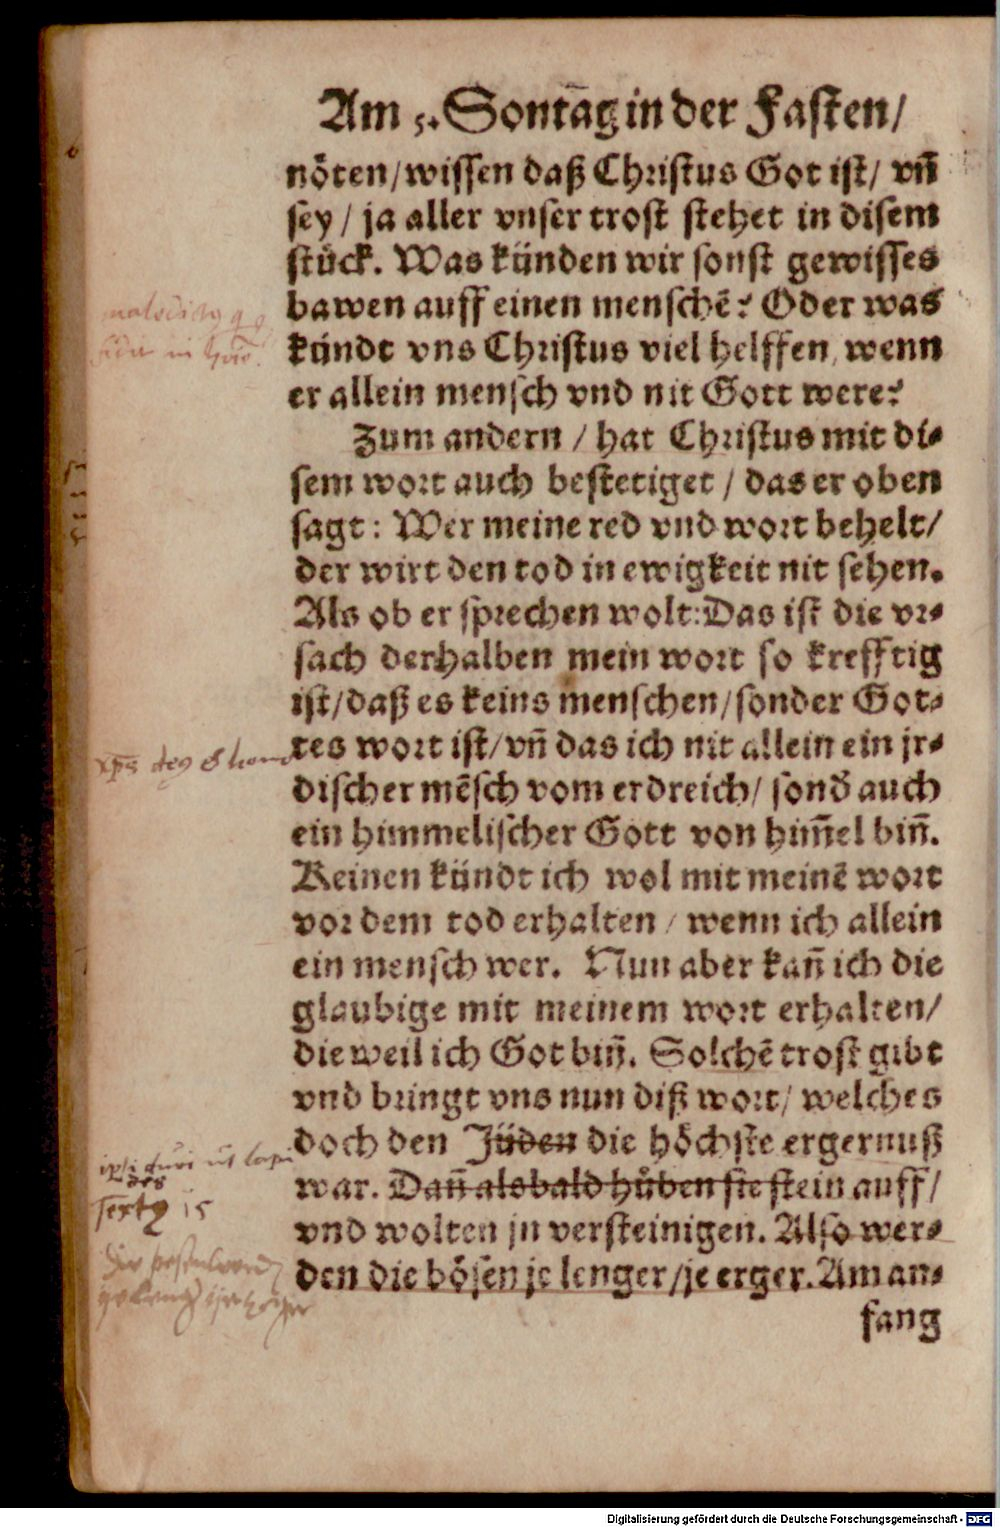 Am 5. Sontag in der Fasten/
nöten/ wissen daß Christus Got ist/ vñ
sey / ja aller vnser trost stehet in disem
stück. Was künden wir sonst gewisses
bawen auff einen menschẽ? Oder was
kündt vns Christus viel helffen, wenn
er allein mensch vnd nit Gott were?
Zum andern / hat Christus mit di⸗
sem wort auch bestetiget / das er oben
sagt: Wer meine red vnd wort behelt/
der wirt den tod in ewigkeit nit sehen.
Als ob er sprechen wolt: Das ist die vr⸗
sach derhalben mein wort so krefftig
ist/ daß es keins menschen/ sonder Got⸗
tes wort ist/ vñ das ich nit allein ein jr⸗
discher mẽsch vom erdreich/ sond auch
ein himmelischer Gott von him̃el biñ.
Keinen kündt ich wol mit meinẽ wort
vor dem tod erhalten / wenn ich allein
ein mensch wer. Nun aber kañ ich die
glaubige mit meinem wort erhalten/
die weil ich Got biñ. Solchẽ trost gibt
vnd bringt vns nun diß wort/ welches
doch den Jüden die höchste ergernuß
war. Dañ alsbald hůben sie stein auff/
vnd wolten jn versteinigen. Also wer⸗
den die bösen je lenger/ je erger. Am an⸗
fang
ut lapi
des
Textq 15
Digitalisierung gefördert durch die Deutsche Forschungsgemeinschaft - DFG